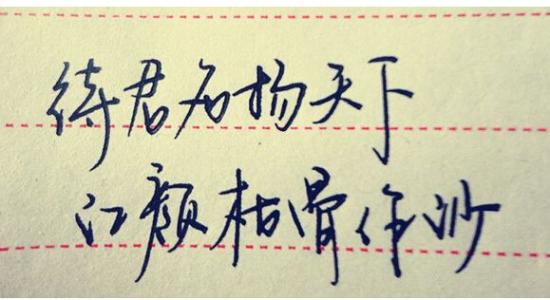 待君名扬天下
红颜枯骨作沙